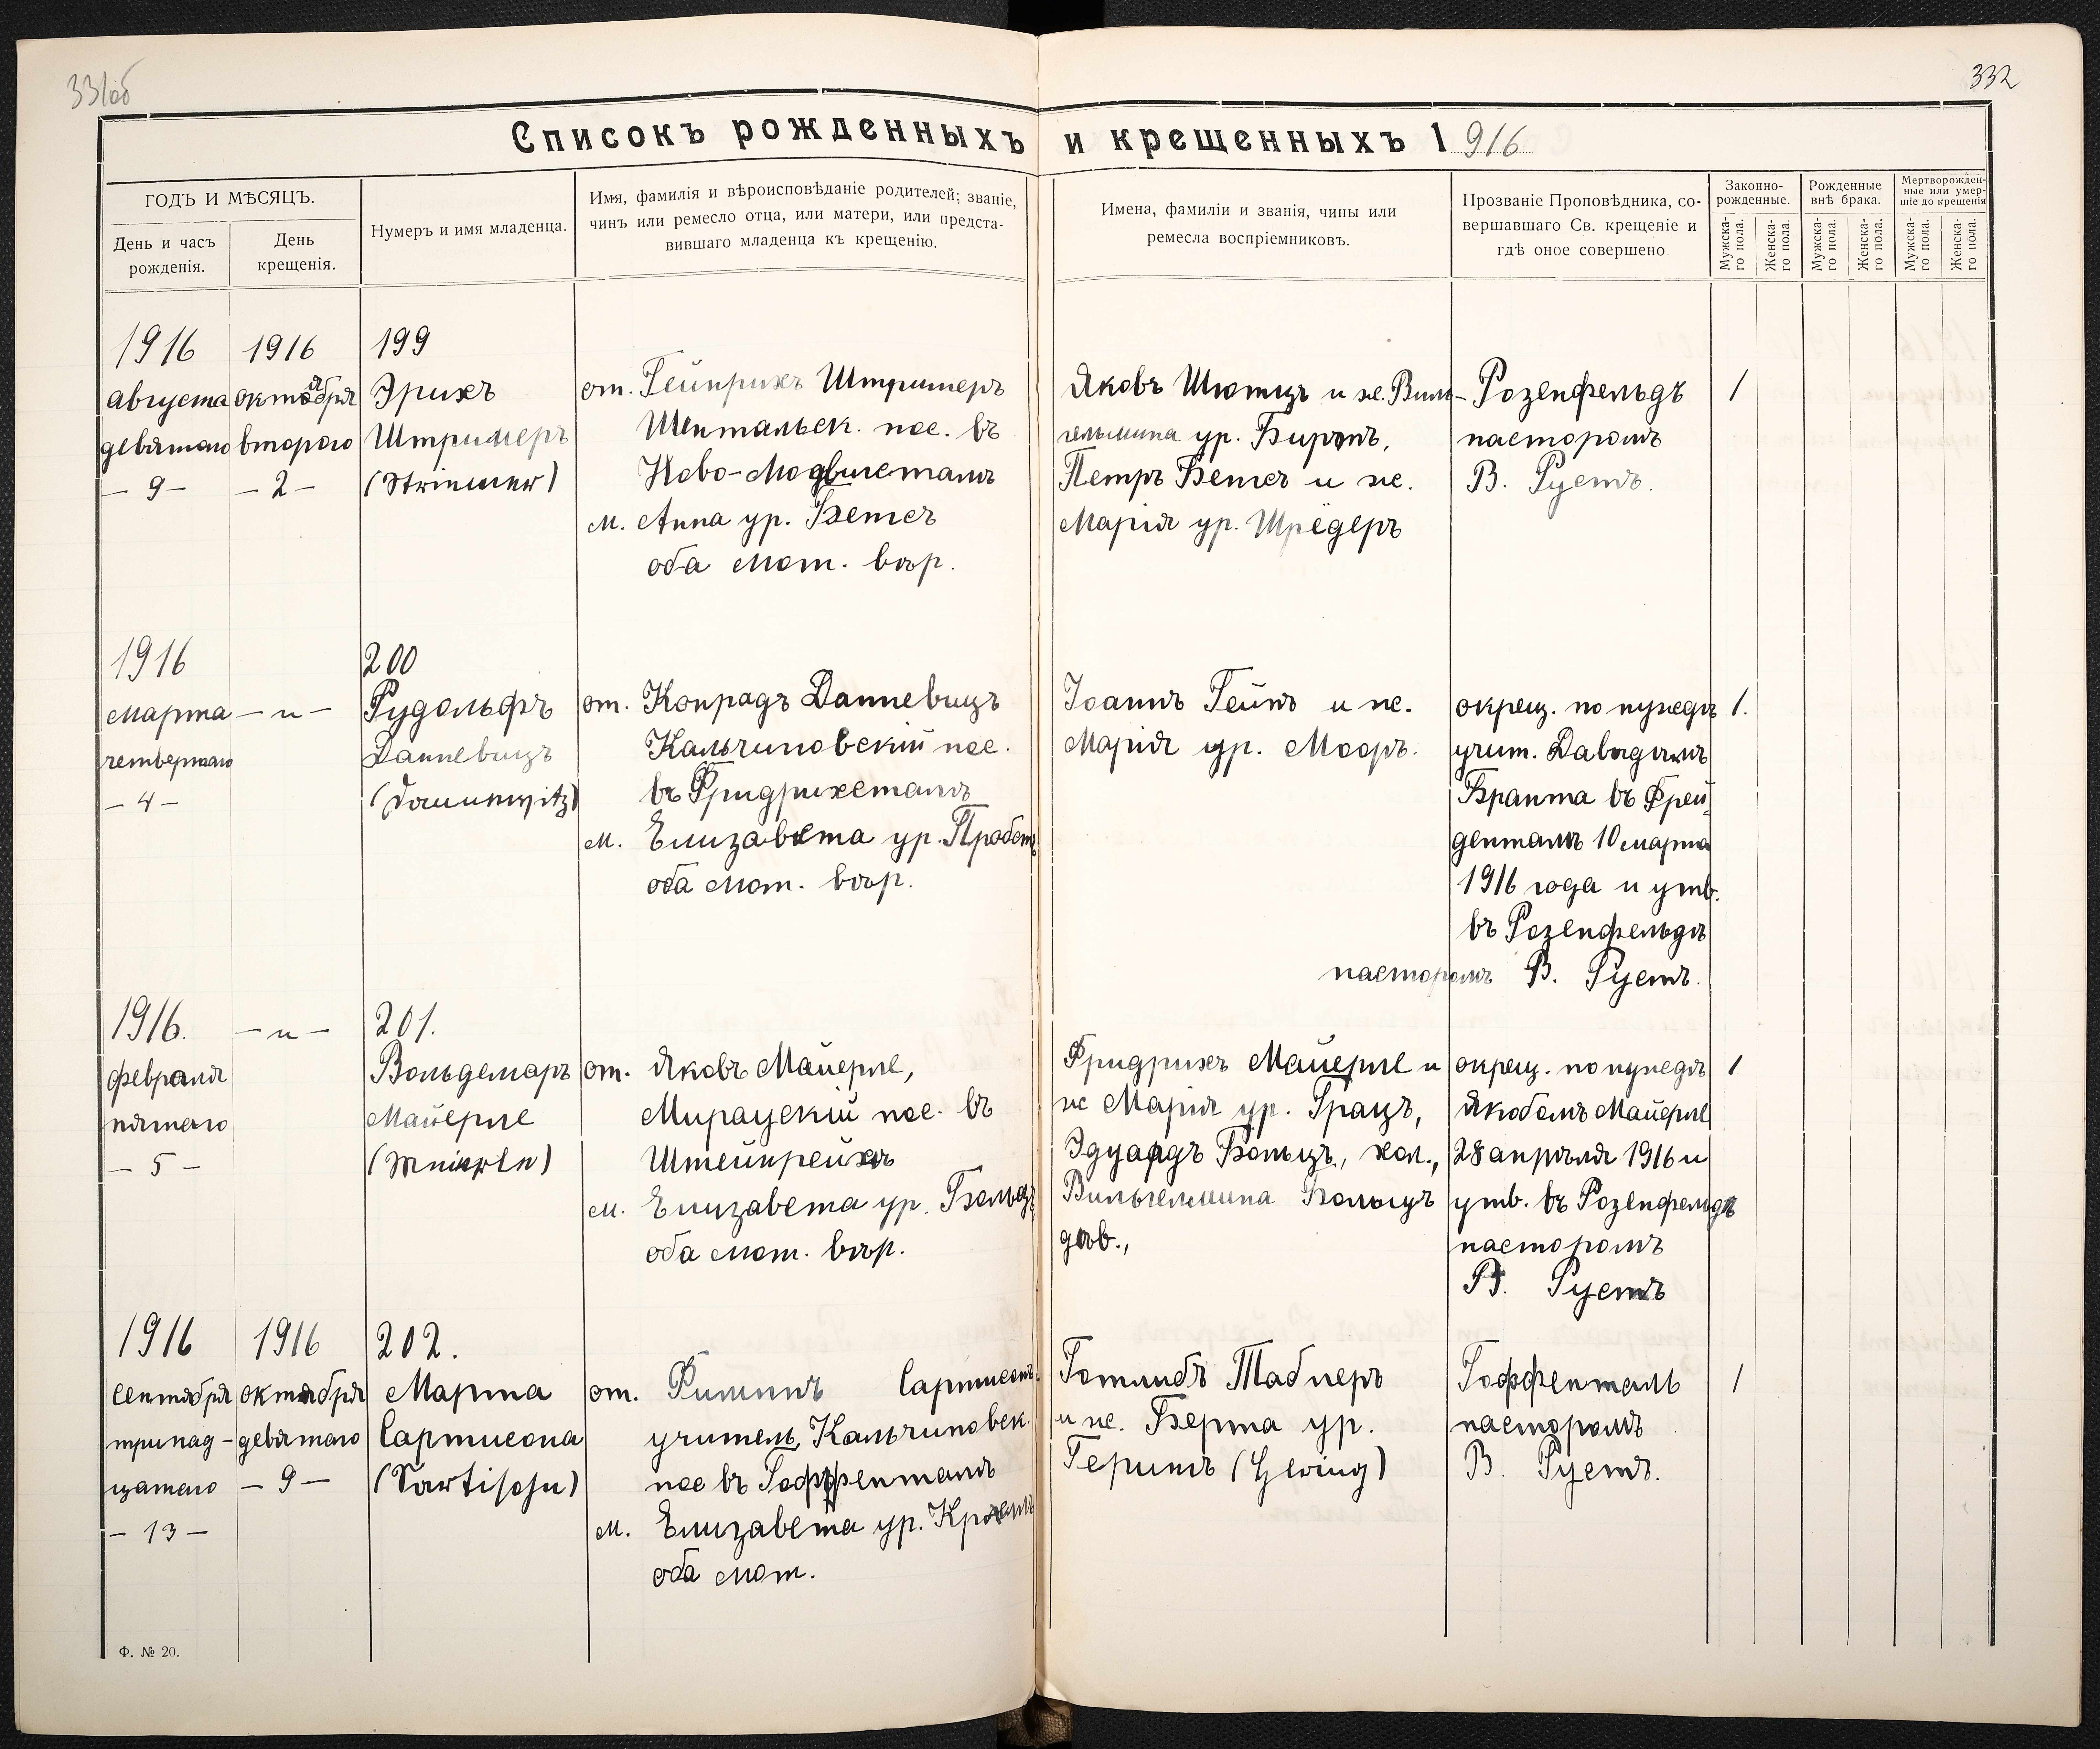 331об
332
Списокъ рожденныхъ и крещенныхъ 1916
ГОДЪ И МѢСЯЦЪ.
День и часъ рожденія.
День крещенія.
Нумеръ и имя младенца.
Имя, фамилія и вѣроисповѣданіе родителей; званіе,
чинъ или ремесло отца, или матери, или предста-
вившаго младенца къ крещенію.
Имена, фамиліи и званія, чины или
ремесла воспріемниковъ.
Прозваніе Проповѣдника, со-
вершавшаго Св. крещеніе и
гдѣ оное совершено
Законно-
рожденные.
Рожденные
внѣ брака.
Мертворожден-
ные или умер-
шіе до крещенія
Мужска-
го пола.
Женска-
го пола.
Мужска-
го пола.
Женска-
го пола.
Мужска-
го пола.
Женска-
го пола.
1916
августа
девятаго
— 9 —
1916
октября
второго
— 2 —
199
Эрихъ
Штримеръ
(Strimmer)
от. Гейнрихъ Штримеръ
Шентальск. пос. въ
Ново-
м. Анна ур. Бетсъ
оба лют. вѣр.
Яковъ Шютцъ и ж. Виль-
гельмина ур.
Петръ Бетсъ и ж.
Марія ур. Шрёдеръ
Розенфельдъ
пасторомъ
В. Рустъ.
1
1916
марта
четвертаго
— 4 —
— и —
200
Рудольфъ
Данневицъ
(Dannewitz)
от. Конрадъ Данневицъ
Кальчиновскій пос.
въ Фридрихсталѣ
м. Елизавета ур. Пробстъ
оба лют. вѣр.
Іоаннъ Гейнъ и ж.
Марія ур. Мооръ.
окрещ. по нуждѣ
учит. Давидомъ
Брантъ въ Фрей-
денталѣ 10 марта
1916 года и утв.
въ Розенфельдѣ
пасторомъ В. Рустъ.
1.
1916.
февраля
пятаго
— 5 —
— и —
201.
Вольдемаръ
Майерле
(Maierle)
от. Яковъ Майерле,
пос. въ
Штейнрейхъ
м. Елизавета ур. Больцъ
оба лют. вѣр.
Фридрихъ Майерле и
ж Марія ур. Грацъ,
Эдуардъ Больцъ, хол.,
Вильгелмина Больцъ
дѣв.,
окрещ. по нуждѣ
Якобомъ Майерле
28 апрѣля 1916 и
утв. въ Розенфельдѣ
пасторомъ
В. Рустъ
1
1916
сентября
тринад-
цатаго
— 13 —
1916
октября
девятаго
— 9 —
202.
Марта
Сартисонъ
(Sartison)
от. Филиппъ Сартисонъ
учитель, Кальчиновск.
пос въ Гоффенталѣ
м. Елизавета ур.
оба лют.
Готлибъ Таблеръ
и ж. Берта ур.
Герингъ (Gering)
Гоффенталь
пасторомъ
В. Рустъ.
1
Ф. № 20.